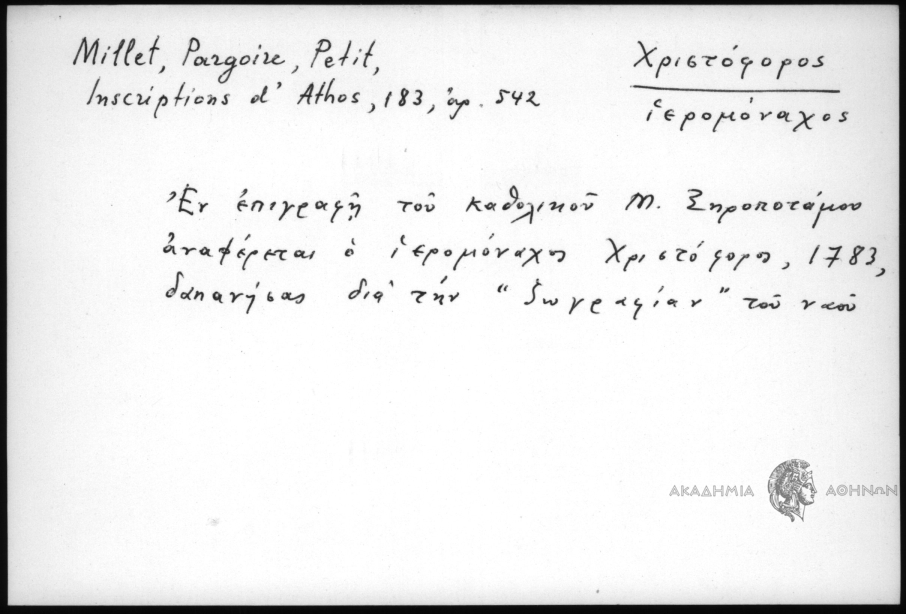 Millet, Pargoire, Petit,
Inscriptions d' Athos, 183, ἀρ. 542
Χριστόφορος
ἱερομόναχος
Ἐν ἐπιγραφῇ τοῦ καθολικοῦ Μ. Ξηροποτάμου
ἀναφέρεται ὁ ἱερομόναχος Χριστόφορος, 1783,
δαπανήσας διὰ τὴν "ζωγραφίαν" τοῦ ναοῦ
ΑΚΑΔΗΜΙΑ ΑΘΗΝΩΝ